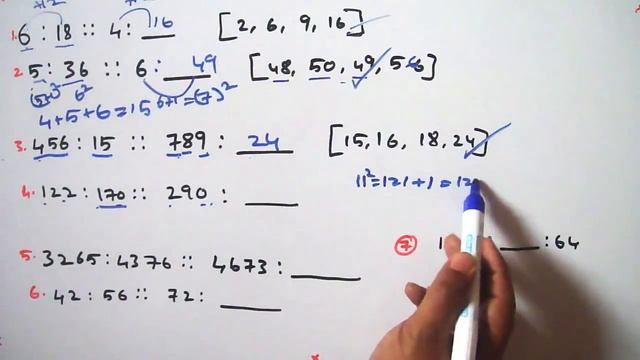 +12
1. 6 : 18 :: 4 : 16 [2, 6, 9, 16]
2. 5 : 36 :: 6 : 49 [48, 50, 49, 56]
(5+1)² 6² 6+1=(7)²
4+5+6=15
3. 456 : 15 :: 789 : 24 [15, 16, 18, 24]
11²=121+1=12
4. 122 : 170 :: 290 : ___
7 1 ___ : 64
5. 3265 : 4376 :: 4673 : ___
6. 42 : 56 :: 72 : ___